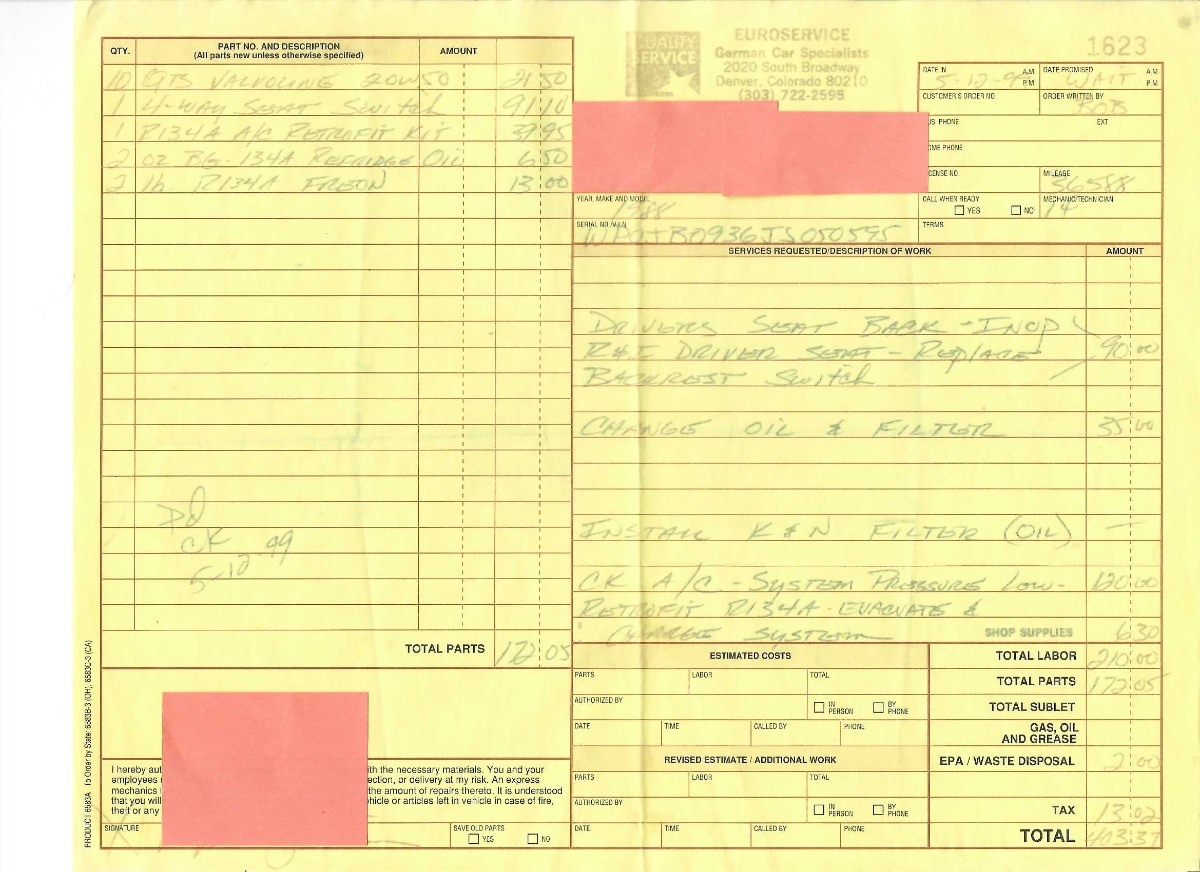 QTY.
PART NO. AND DESCRIPTION
(All parts new unless otherwise specified)
AMOUNT
10 QTS VALVOLINE 20W50 21.50
1 4-WAY SEAT SWITCH 91.10
1 R134A A/C RETROFIT KIT 39.95
2 OZ BG-134A REFRIDGE OIL 6.50
2 lb. R134A FREON 13.00
PD
CK
5-12-99
TOTAL PARTS 172.05
PRODUCT 6583A To Order by State: 6583B-3 (OH), 6583C-3 (CA)
I hereby aut
ith the necessary materials. You and your
employees
ection, or delivery at my risk. An express
mechanics
the amount of repairs thereto. It is understood
that you will
ehicle or articles left in vehicle in case of fire,
theft or any
SIGNATURE
X
SAVE OLD PARTS
YES NO
QUALITY SERVICE
EUROSERVICE
German Car Specialists
2020 South Broadway
Denver, Colorado 80210
(303) 722-2595
1623
DATE IN 5-12-9 A.M. P.M.
DATE PROMISED WAIT A.M. P.M.
CUSTOMER'S ORDER NO.
ORDER WRITTEN BY BOB
US. PHONE EXT
OME PHONE
CENSE NO.
MILEAGE 56588
YEAR, MAKE AND MODEL 1988
CALL WHEN READY
YES NO
MECHANIC/TECHNICIAN 14
SERIAL NO./V.I.N. WP0JB0936JS050595
TERMS
SERVICES REQUESTED/DESCRIPTION OF WORK AMOUNT
DRIVERS SEAT BACK - INOP
R&I DRIVER SEAT - REPLACE 90.00
BACKREST SWITCH
CHANGE OIL & FILTER 35.00
INSTALL K & N FILTER (OIL) —
CK A/C - SYSTEM PRESSURE LOW - 120.00
RETROFIT R134A - EVACUATE &
CHARGE SYSTEM
SHOP SUPPLIES 6.30
ESTIMATED COSTS
PARTS LABOR TOTAL
AUTHORIZED BY
IN PERSON BY PHONE
DATE TIME CALLED BY PHONE
REVISED ESTIMATE / ADDITIONAL WORK
PARTS LABOR TOTAL
AUTHORIZED BY
IN PERSON BY PHONE
DATE TIME CALLED BY PHONE
TOTAL LABOR 210.00
TOTAL PARTS 172.05
TOTAL SUBLET
GAS, OIL
AND GREASE
EPA / WASTE DISPOSAL 2.00
TAX 13.02
TOTAL 403.37